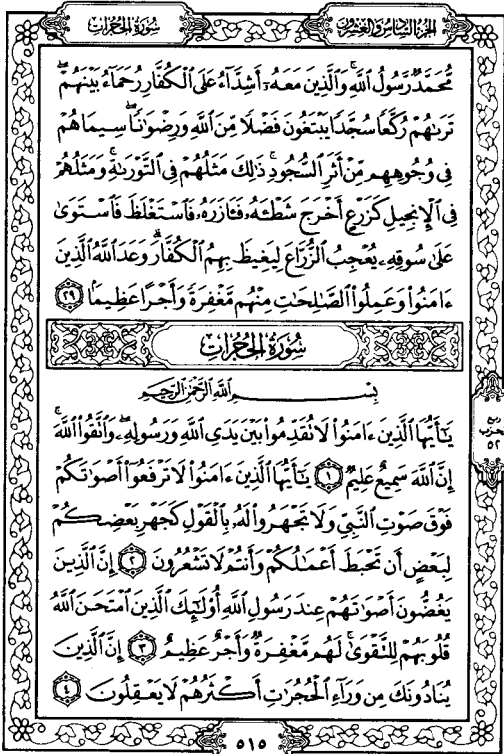 سُورَةُ الحُجُرَاتِ
الجُزْءُ السَّادِسُ وَالعِشْرُونَ
مُّحَمَّدٌ رَّسُولُ ٱللَّهِ وَٱلَّذِينَ مَعَهُۥٓ أَشِدَّآءُ عَلَى ٱلْكُفَّارِ رُحَمَآءُ بَيْنَهُمْ
تَرَىٰهُمْ رُكَّعًا سُجَّدًا يَبْتَغُونَ فَضْلًا مِّنَ ٱللَّهِ وَرِضْوَٰنًا سِيمَاهُمْ
فِى وُجُوهِهِم مِّنْ أَثَرِ ٱلسُّجُودِ ذَٰلِكَ مَثَلُهُمْ فِى ٱلتَّوْرَىٰةِ وَمَثَلُهُمْ
فِى ٱلْإِنجِيلِ كَزَرْعٍ أَخْرَجَ شَطْـَٔهُۥ فَـَٔازَرَهُۥ فَٱسْتَغْلَظَ فَٱسْتَوَىٰ
عَلَىٰ سُوقِهِۦ يُعْجِبُ ٱلزُّرَّاعَ لِيَغِيظَ بِهِمُ ٱلْكُفَّارَ وَعَدَ ٱللَّهُ ٱلَّذِينَ
ءَامَنُوا۟ وَعَمِلُوا۟ ٱلصَّٰلِحَٰتِ مِنْهُم مَّغْفِرَةً وَأَجْرًا عَظِيمًۢا ٢٩
سُورَةُ الحُجُرَاتِ
بِسْمِ ٱللَّهِ ٱلرَّحْمَٰنِ ٱلرَّحِيمِ
يَٰٓأَيُّهَا ٱلَّذِينَ ءَامَنُوا۟ لَا تُقَدِّمُوا۟ بَيْنَ يَدَىِ ٱللَّهِ وَرَسُولِهِۦ وَٱتَّقُوا۟ ٱللَّهَ
إِنَّ ٱللَّهَ سَمِيعٌ عَلِيمٌ ١ يَٰٓأَيُّهَا ٱلَّذِينَ ءَامَنُوا۟ لَا تَرْفَعُوٓا۟ أَصْوَٰتَكُمْ
فَوْقَ صَوْتِ ٱلنَّبِىِّ وَلَا تَجْهَرُوا۟ لَهُۥ بِٱلْقَوْلِ كَجَهْرِ بَعْضِكُمْ
لِبَعْضٍ أَن تَحْبَطَ أَعْمَٰلُكُمْ وَأَنتُمْ لَا تَشْعُرُونَ ٢ إِنَّ ٱلَّذِينَ
يَغُضُّونَ أَصْوَٰتَهُمْ عِندَ رَسُولِ ٱللَّهِ أُو۟لَٰٓئِكَ ٱلَّذِينَ ٱمْتَحَنَ ٱللَّهُ
قُلُوبَهُمْ لِلتَّقْوَىٰ لَهُم مَّغْفِرَةٌ وَأَجْرٌ عَظِيمٌ ٣ إِنَّ ٱلَّذِينَ
يُنَادُونَكَ مِن وَرَآءِ ٱلْحُجُرَٰتِ أَكْثَرُهُمْ لَا يَعْقِلُونَ ٤
ربع
حزب
٥٢
٥١٥